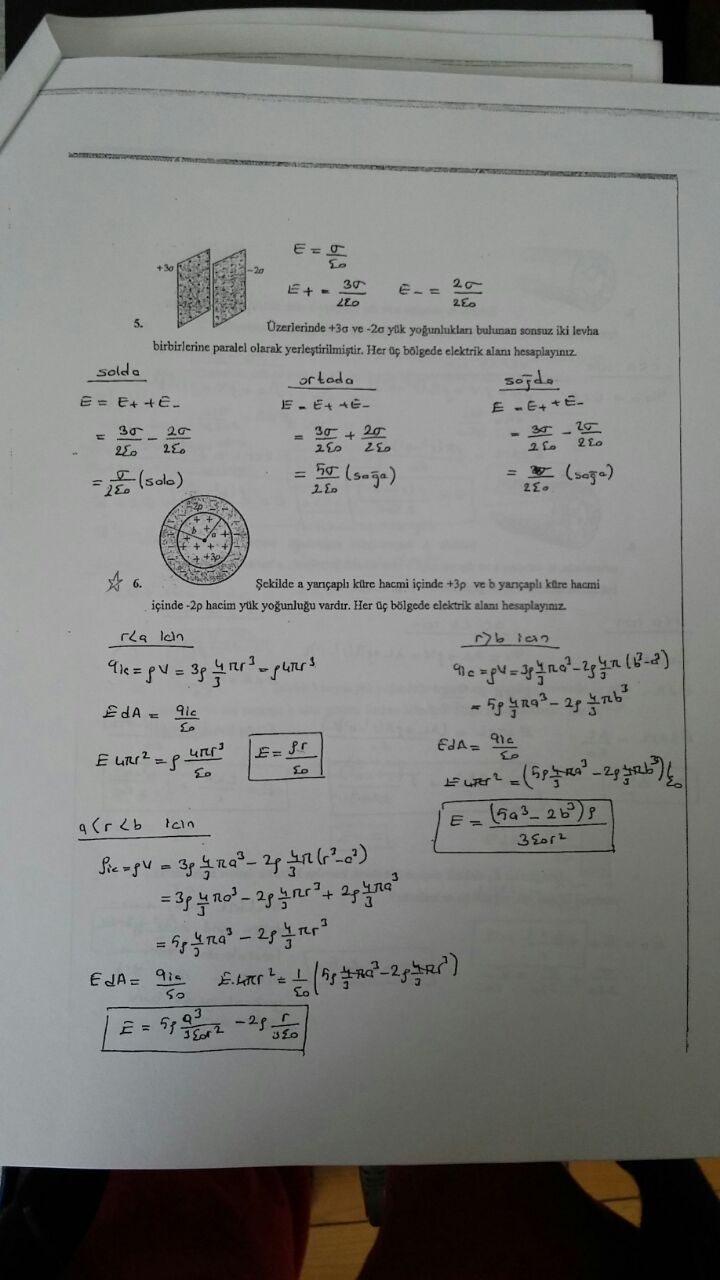 E = σ/ε₀
+3σ
-2σ
E+ = 3σ/2ε₀   E- = 2σ/2ε₀
5. Üzerlerinde +3σ ve -2σ yük yoğunlukları bulunan sonsuz iki levha
birbirlerine paralel olarak yerleştirilmiştir. Her üç bölgede elektrik alanı hesaplayınız.
solda
E = E+ + E-
= 3σ/2ε₀ - 2σ/2ε₀
= σ/2ε₀ (sola)
ortada
E = E+ + E-
= 3σ/2ε₀ + 2σ/2ε₀
= 5σ/2ε₀ (sağa)
sağda
E = E+ + E-
= 3σ/2ε₀ - 2σ/2ε₀
= σ/2ε₀ (sağa)
2ρ
b
a
+3ρ
6. Şekilde a yarıçaplı küre hacmi içinde +3ρ ve b yarıçaplı küre hacmi
içinde -2ρ hacim yük yoğunluğu vardır. Her üç bölgede elektrik alanı hesaplayınız.
r<a icin
qic = ρV = 3ρ 4/3 πr³ = ρ4πr³
EdA = qic/ε₀
E 4πr² = ρ 4πr³/ε₀
E = ρr/ε₀
r>b icin
qic = ρV = 3ρ 4/3 πa³ - 2ρ 4/3 π (b³-a³)
= 5ρ 4/3 πa³ - 2ρ 4/3 πb³
EdA = qic/ε₀
E 4πr² = (5ρ 4/3 πa³ - 2ρ 4/3 πb³)/ε₀
E = (5a³ - 2b³)ρ/3ε₀r²
a<r<b icin
ρic = ρV = 3ρ 4/3 πa³ - 2ρ 4/3 π(r³-a³)
= 3ρ 4/3 πa³ - 2ρ 4/3 πr³ + 2ρ 4/3 πa³
= 5ρ 4/3 πa³ - 2ρ 4/3 πr³
EdA = qic/ε₀   E.4πr² = 1/ε₀ (5ρ 4/3 πa³ - 2ρ 4/3 πr³)
E = 5ρ a³/3ε₀r² - 2ρ r/3ε₀